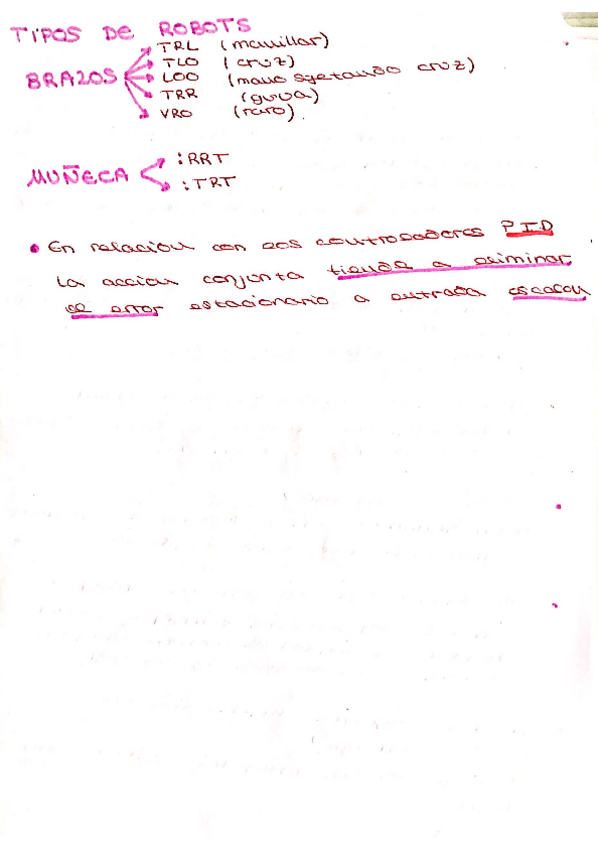 TIPOS DE ROBOTS
BRAZOS
TRL (manillar)
TLO (cruz)
LOO (mano sujetando cruz)
TRR (grúa)
VRO (raro)
MUÑECA
:RRT
:TRT
• En relación con los controladores P.I.D
La acción conjunta tiende a eliminar
el error estacionario a entrada escalón